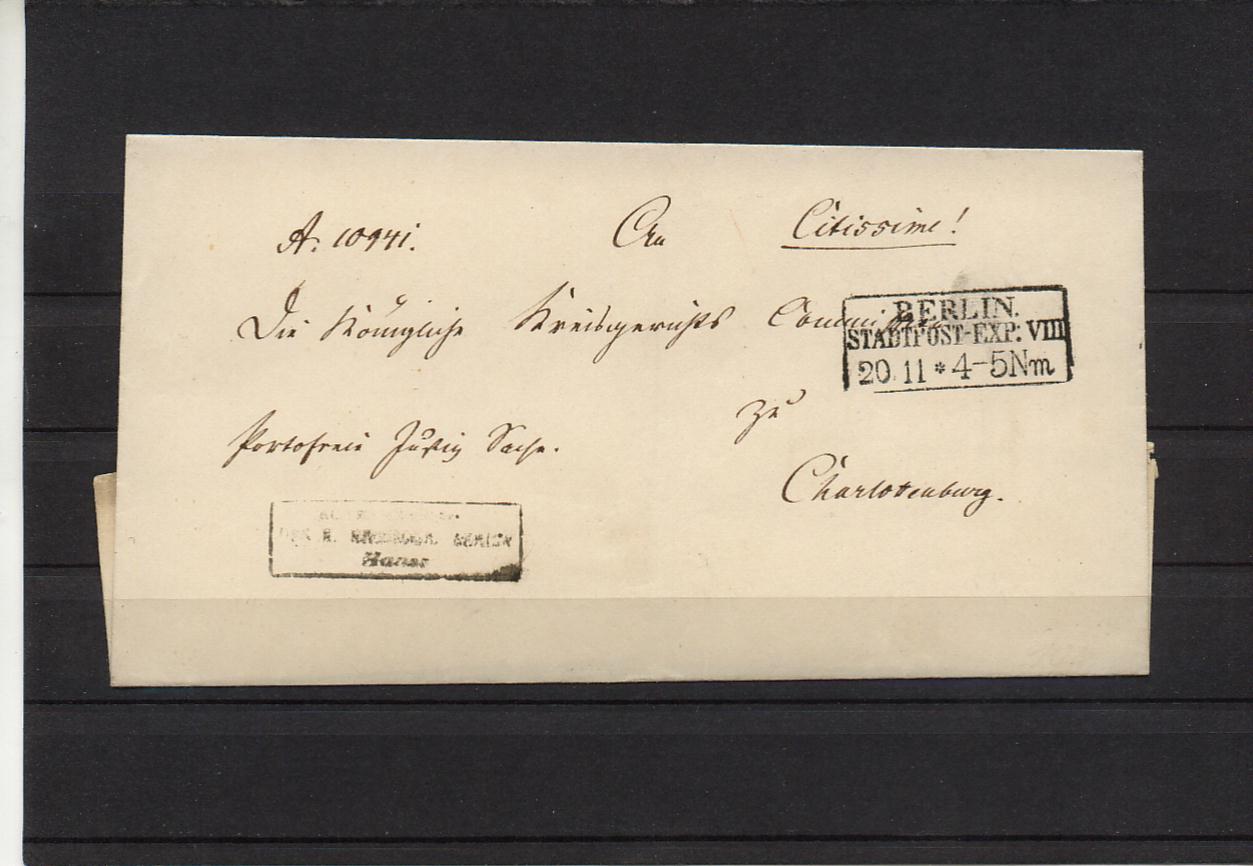 A. 10941. An Citissime!
Die Königliche Kreisgerichts Commission
BERLIN.
STADTPOST-EXP: VIII
20 11 * 4-5 Nm
zu
Portofreie Justiz Sache.
Charlottenburg.